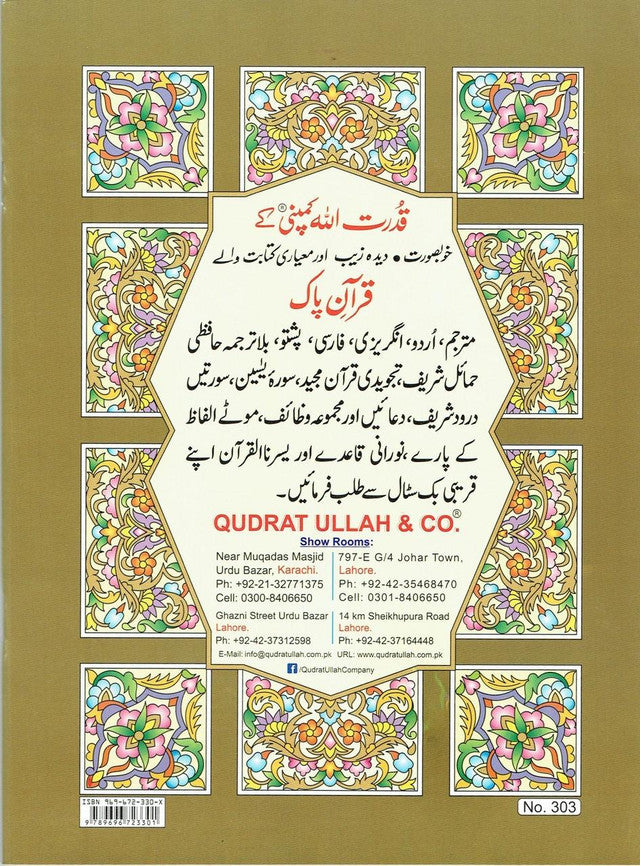 قدرت اللہ کمپنی® کے
خوبصورت • دیدہ زیب اور معیاری کتابت والے
قرآنِ پاک
مترجم، اُردو، انگریزی، فارسی، پشتو، بلا ترجمہ حافظی
حمائل شریف، تجویدی قرآن مجید، سورۂ یٰسین، سورتیں
درود شریف، دعائیں اور مجموعہ وظائف، موٹے الفاظ
کے پارے، نورانی قاعدے اور یسرنا القرآن اپنے
قریبی بک سٹال سے طلب فرمائیں۔
QUDRAT ULLAH & CO.®
Show Rooms:
Near Muqadas Masjid
Urdu Bazar, Karachi.
Ph: +92-21-32771375
Cell: 0300-8406650
797-E G/4 Johar Town,
Lahore.
Ph: +92-42-35468470
Cell: 0301-8406650
Ghazni Street Urdu Bazar
Lahore.
Ph: +92-42-37312598
14 km Sheikhupura Road
Lahore.
Ph: +92-42-37164448
E-Mail: info@qudratullah.com.pk URL: www.qudratullah.com.pk
f /QudratUllahCompany
ISBN 969-672-330-X
9 789696 723301
No. 303